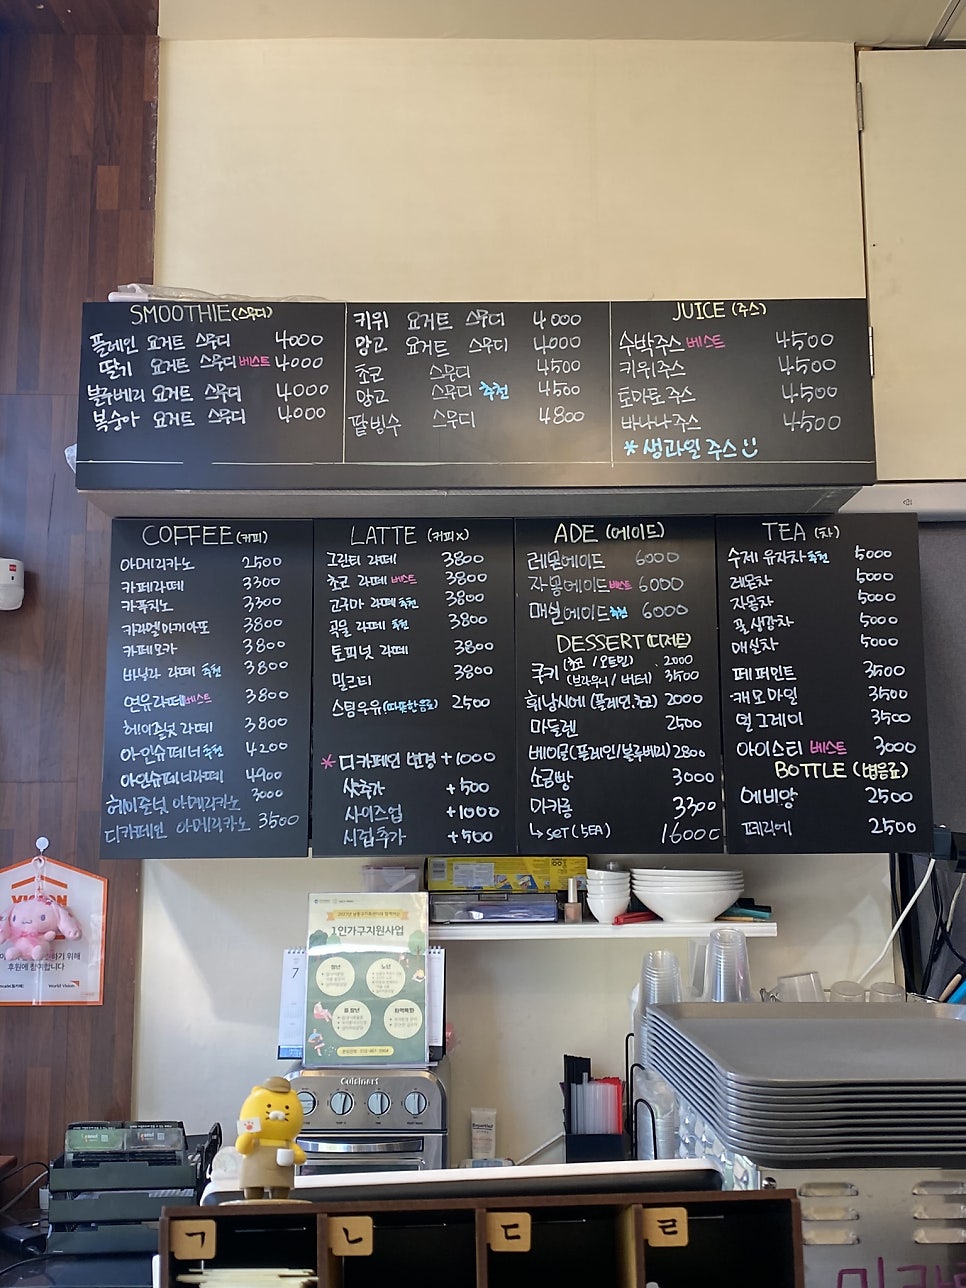 SMOOTHIE(스무디)
플레인 요거트 스무디 4000
딸기 요거트 스무디 베스트 4000
블루베리 요거트 스무디 4000
복숭아 요거트 스무디 4000
키위 요거트 스무디 4000
망고 요거트 스무디 4000
초코 스무디 4500
망고 스무디 추천 4500
팥빙수 스무디 4800
JUICE (주스)
수박주스 베스트 4500
키위주스 4500
토마토주스 4500
바나나주스 4500
*생과일 주스
COFFEE(커피)
아메리카노 2500
카페라떼 3300
카푸치노 3300
카라멜마끼아또 3800
카페모카 3800
바닐라 라떼 추천 3800
연유라떼 베스트 3800
헤이즐넛 라떼 3800
아인슈페너 추천 4200
아인슈페너라떼 4900
헤이즐넛 아메리카노 3000
디카페인 아메리카노 3500
LATTE (커피x)
그린티 라떼 3800
초코 라떼 베스트 3800
고구마 라떼 추천 3800
곡물 라떼 추천 3800
토피넛 라떼 3800
밀크티 3800
스팀우유(따뜻한음료) 2500
*디카페인 변경 +1000
샷추가 +500
사이즈업 +1000
시럽추가 +500
ADE (에이드)
레몬에이드 6000
자몽에이드 베스트 6000
매실에이드 추천 6000
DESSERT(디저트)
쿠키 (초코 / 오트밀) 2000
(브라우니 / 버터) 3500
휘낭시에 (플레인.초코) 2000
마들렌 2500
베이글(플레인/블루베리) 2800
소금빵 3000
마카롱 3300
↳ SET (5EA) 16000
TEA (차)
수제 유자차 추천 5000
레몬차 5000
자몽차 5000
꿀생강차 5000
매실차 5000
페퍼민트 3500
캐모마일 3500
얼그레이 3500
아이스티 베스트 3000
BOTTLE (병음료)
에비앙 2500
페리에 2500
1인가구지원사업
청년
노년
중장년
VISION
후원에 참여합니다
World Vision
7
Cuisinart
ㄱ
ㄴ
ㄷ
ㄹ